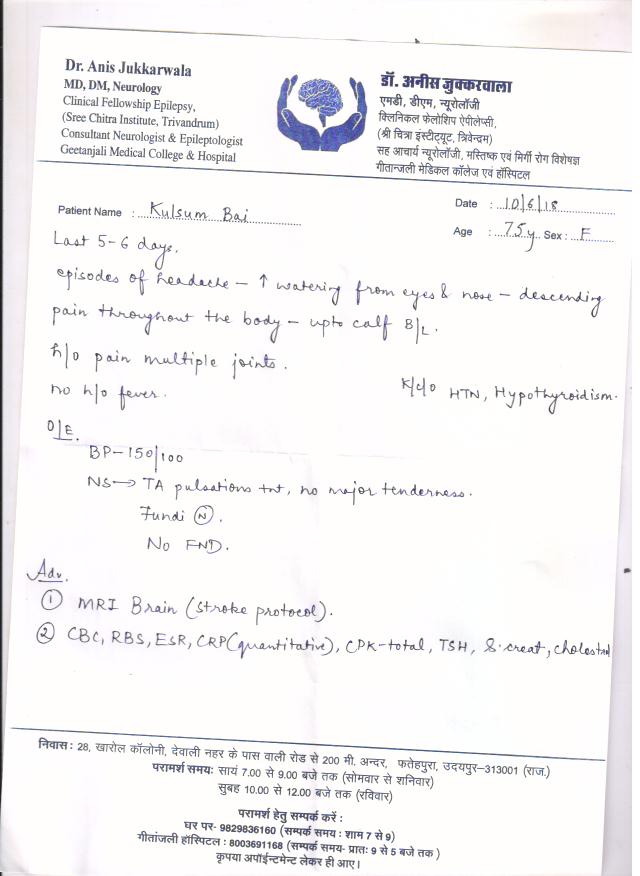 Dr. Anis Jukkarwala
MD, DM, Neurology
Clinical Fellowship Epilepsy,
(Sree Chitra Institute, Trivandrum)
Consultant Neurologist & Epileptologist
Geetanjali Medical College & Hospital
डॉ. अनीस जुक्करवाला
एमडी, डीएम, न्यूरोलॉजी
क्लिनिकल फेलोशिप ऐपीलेप्सी,
(श्री चित्रा इंस्टीट्यूट, त्रिवेन्द्रम)
सह आचार्य न्यूरोलॉजी, मस्तिष्क एवं मिर्गी रोग विशेषज्ञ
गीतान्जली मेडिकल कॉलेज एवं हॉस्पिटल
Date : 10/6/18
Patient Name : Kulsum Bai
Age : 75y Sex : F
Last 5-6 days.
episodes of headache – ↑ watering from eyes & nose – descending
pain throughout the body – upto calf B/L.
h/o pain multiple joints.
no h/o fever.
K/c/o HTN, Hypothyroidism.
O/E.
BP-150/100
NS → TA pulsations +nt, no major tenderness.
Fundi (N).
No FND.
Adv.
① MRI Brain (stroke protocol).
② CBC, RBS, ESR, CRP (quantitative), CPK-total, TSH, S. creat, cholesterol
निवास : 28, खारोल कॉलोनी, देवाली नहर के पास वाली रोड से 200 मी. अन्दर, फतेहपुरा, उदयपुर–313001 (राज.)
परामर्श समय: सायं 7.00 से 9.00 बजे तक (सोमवार से शनिवार)
सुबह 10.00 से 12.00 बजे तक (रविवार)
परामर्श हेतु सम्पर्क करें :
घर पर- 9829836160 (सम्पर्क समय : शाम 7 से 9)
गीतांजली हॉस्पिटल : 8003691168 (सम्पर्क समय- प्रातः 9 से 5 बजे तक )
कृपया अपॉईन्टमेन्ट लेकर ही आए।